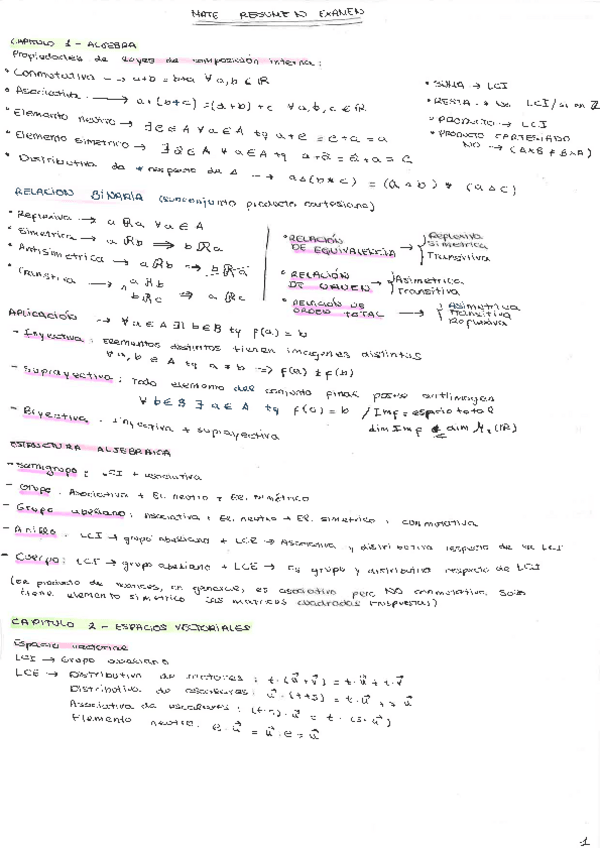 MATE RESUMEN EXAMEN
CAPITULO 1 - ALGEBRA
Propiedades de Leyes de composición interna:
• Conmutativa → a+b = b+a ∀ a,b ∈ ℝ
• Asociativa → a+(b+c) = (a+b)+c ∀ a,b,c ∈ ℝ
• Elemento neutro → ∃ e ∈ A ∀ a ∈ A tq a+e = e+a = a
• Elemento simetrico → ∃ ā ∈ A ∀ a ∈ A tq a+ā = ā+a = e
• Distributiva de * respecto de △ → a△(b*c) = (a△b) * (a△c)
• SUMA → LCI
• RESTA → LCI/si en ℤ
• PRODUCTO → LCI
• PRODUCTO CARTESIANO
NO → (A×B ≠ B×A)
RELACION BINARIA (subconjunto producto cartesiano)
• Reflexiva → a ℝ a ∀ a ∈ A
• Simetrica → a ℝ b → b ℝ a
• Antisimetrica → a ℝ b → b ℝ a
• Transitiva → a ℝ b
b ℝ c ⇒ a ℝ c
• RELACIÓN DE EQUIVALENCIA →
Reflexiva
Simetrica
Transitiva
• RELACIÓN DE ORDEN →
Asimetrica
Transitiva
• RELACIÓN DE ORDEN TOTAL →
Asimetrica
Transitiva
Reflexiva
Aplicación → ∀ a ∈ A ∃! b ∈ B tq f(a) = b
- Inyectiva: Elementos distintos tienen imagenes distintas
∀ a,b ∈ A tq a ≠ b => f(a) ≠ f(b)
- Suprayectiva: Todo elemento del conjunto final posee antiimagen
∀ b ∈ B ∃ a ∈ A tq f(a) = b / Imf = espacio total
dim Imf
- Biyectiva. Inyectiva + suprayectiva
ESTRUCTURA ALGEBRAICA
- Semigrupo: LCI + asociativa
- Grupo. Asociativa + El. neutro + El. simétrico
- Grupo abeliano: asociativa + El. neutro + El. simetrico + conmutativa
- Anillo. LCI → grupo abeliano + LCE → Asociativa y distributiva respecto de la LCI
- Cuerpo: LCI → grupo abeliano + LCE → Es grupo y distributiva respecto de LCI
(El producto de matrices, en general, es asociativo pero NO conmutativo. Solo
tiene elemento simetrico las matrices cuadradas)
CAPITULO 2 - ESPACIOS VECTORIALES
Espacio vectorial
LCI → Grupo abeliano
LCE → Distributiva de vectores: t·(u⃗+v⃗) = t·u⃗ + t·v⃗
Distributiva de escalares: u⃗·(t+s) = t·u⃗ + s·u⃗
Asociativa de escalares: (t·s)·u⃗ = t·(s·u⃗)
Elemento neutro: e·u⃗ = u⃗·e = u⃗
1